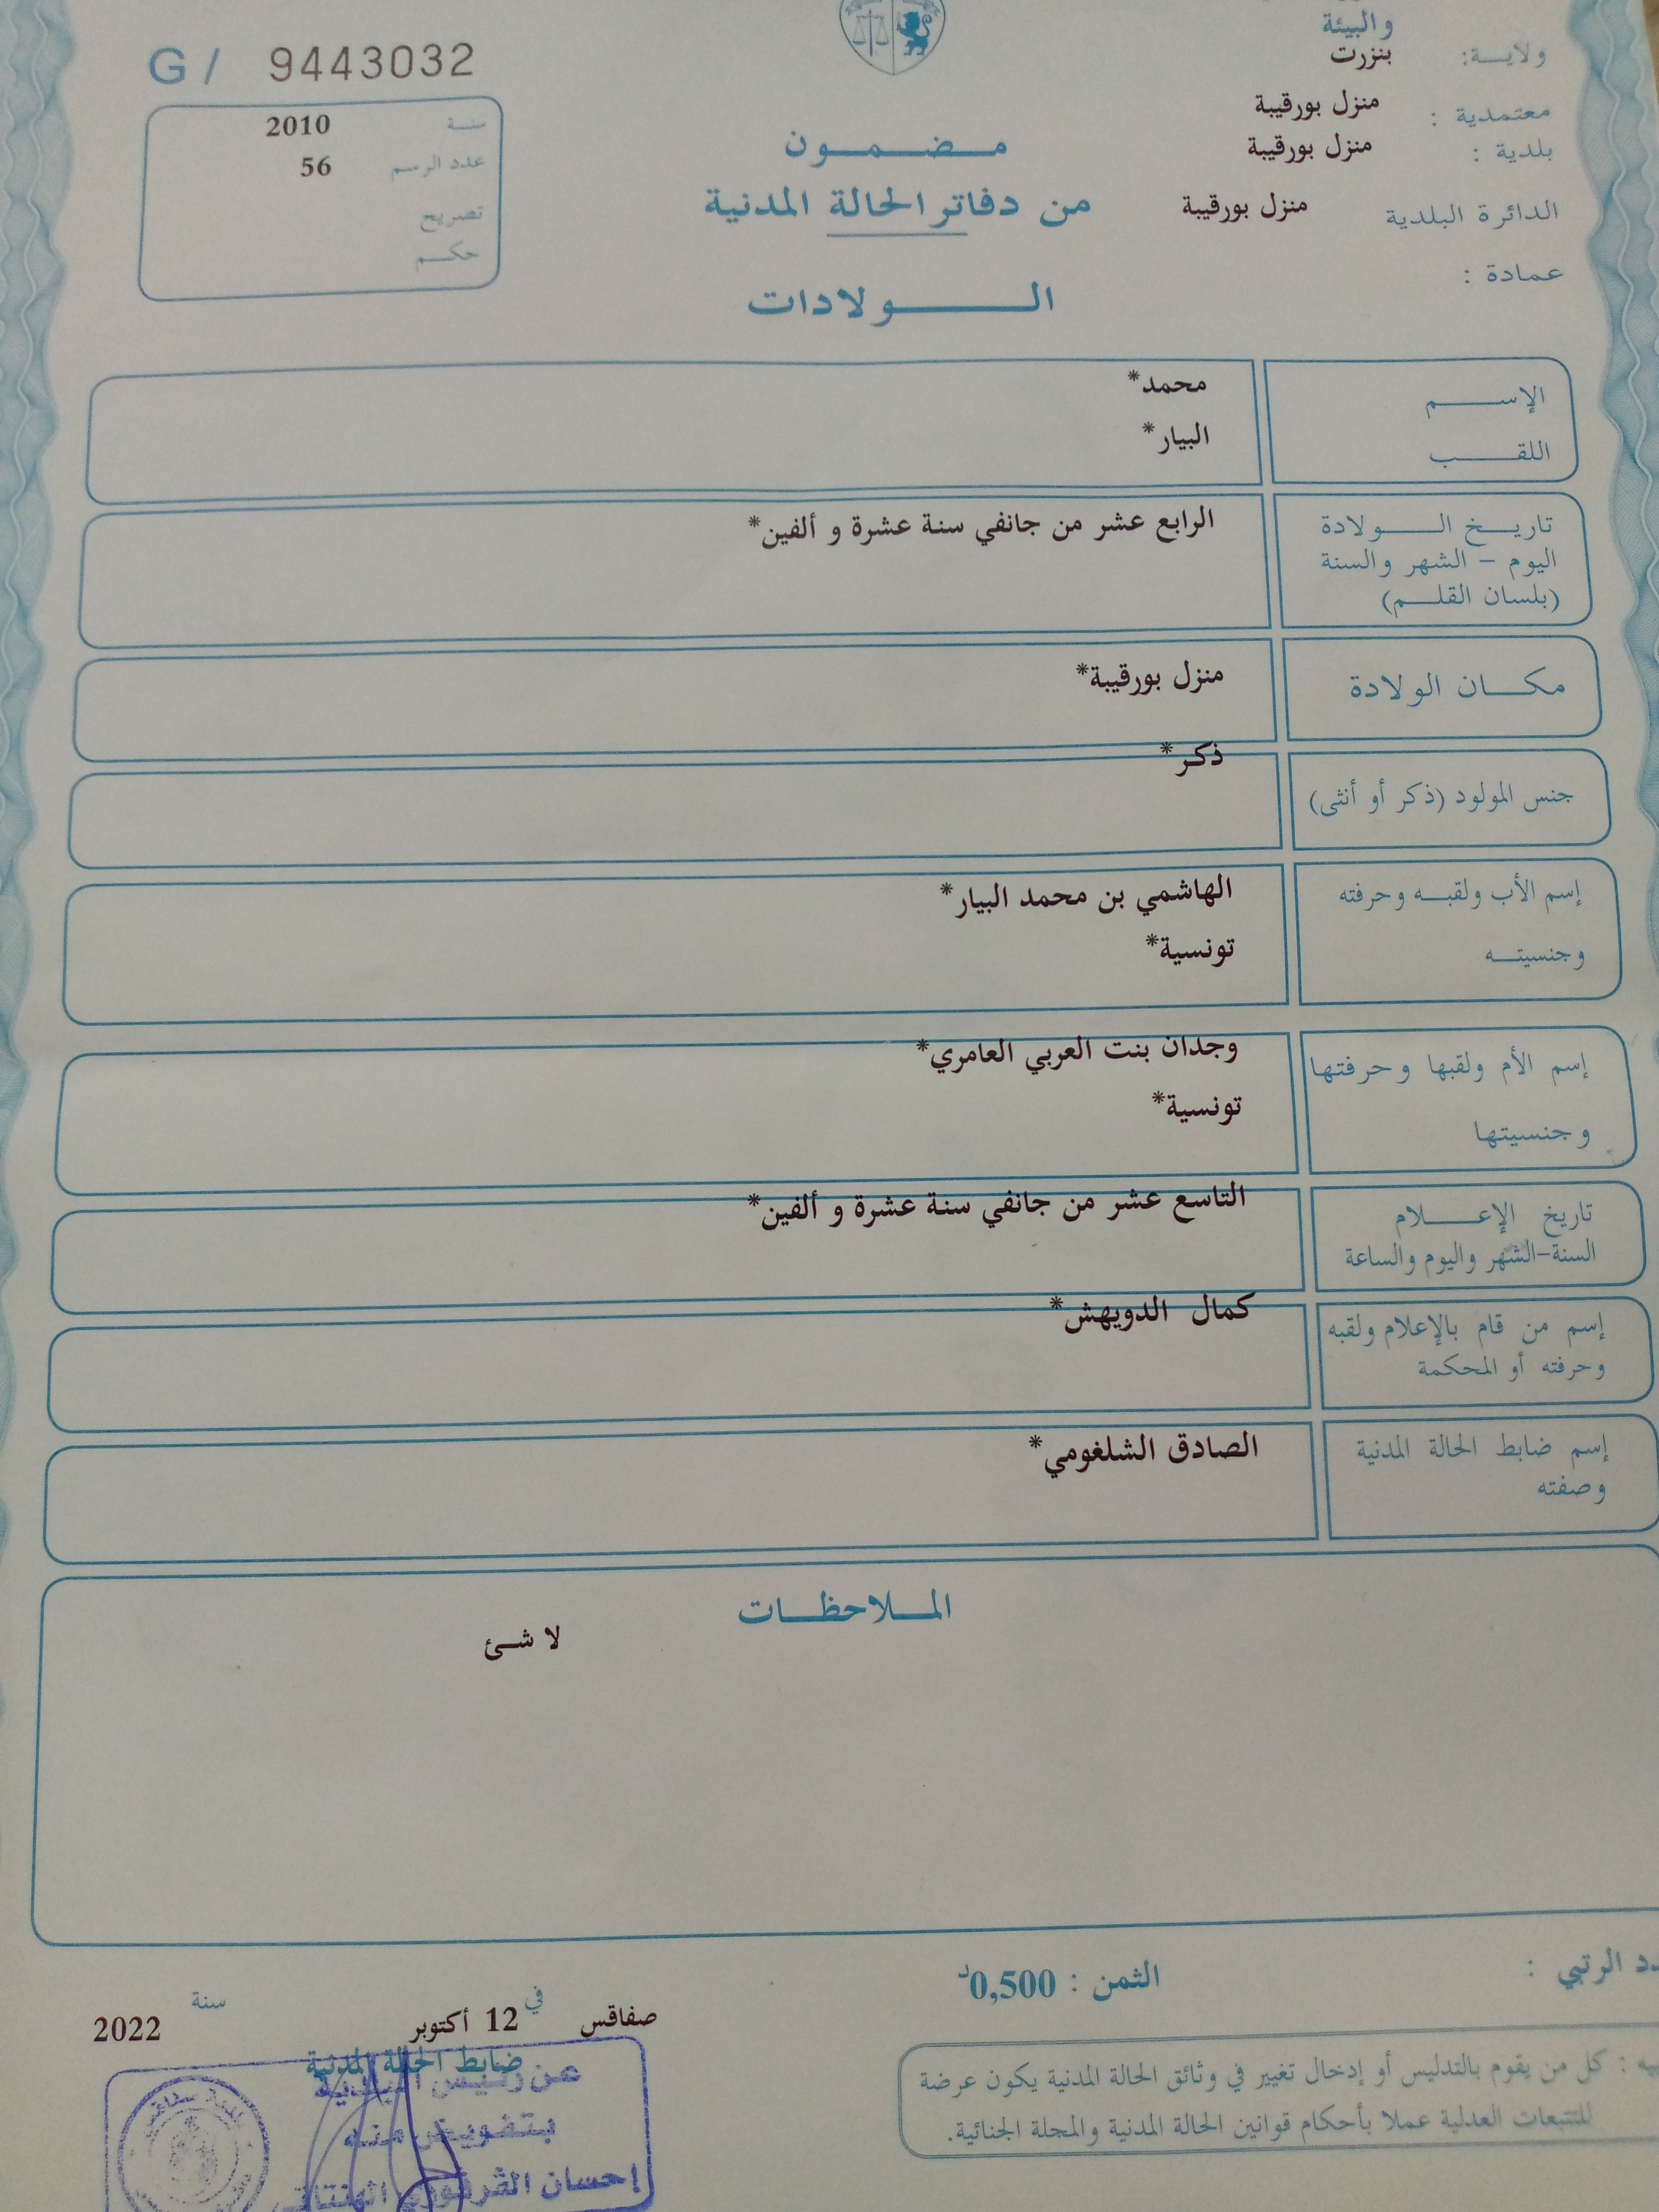 والبيئة
ولايـــة: بنزرت
معتمدية : منزل بورقيبة
بلدية : منزل بورقيبة
الدائرة البلدية منزل بورقيبة
عمادة :
مـــضـــمـــون
من دفاتر الحالة المدنية
الـــــولادات
G / 9443032
سنــة 2010
عدد الرسم 56
تصريح
حكـــم
الإســـــم محمد*
اللقـــــب البيار*
تاريـــخ الــــولادة الرابع عشر من جانفي سنة عشرة و ألفين*
اليوم – الشهر والسنة
(بلسان القلـــم)
مكـــان الولادة منزل بورقيبة*
جنس المولود (ذكر أو أنثى) ذكر*
إسم الأب ولقبـــه وحرفته الهاشمي بن محمد البيار*
وجنسيتـــه تونسية*
إسم الأم ولقبها وحرفتها وجدان بنت العربي العامري*
وجنسيتها تونسية*
تاريخ الإعـــــلام التاسع عشر من جانفي سنة عشرة و ألفين*
السنة–الشهر واليوم والساعة
إسم من قام بالإعلام ولقبه كمال الدويهش*
وحرفته أو المحكمة
إسم ضابط الحالة المدنية الصادق الشلغومي*
وصفته
المـــلاحظـــات
لا شئ
الرتبي :
الثمن : 0,500د
صفاقس في 12 أكتوبر سنة 2022
ضابط الحالة المدنية
عن رئيس البلدية
بتفويض منه
إحسان
: كل من يقوم بالتدليس أو إدخال تغيير في وثائق الحالة المدنية يكون عرضة
للتتبعات العدلية عملا بأحكام قوانين الحالة المدنية والمجلة الجنائية.